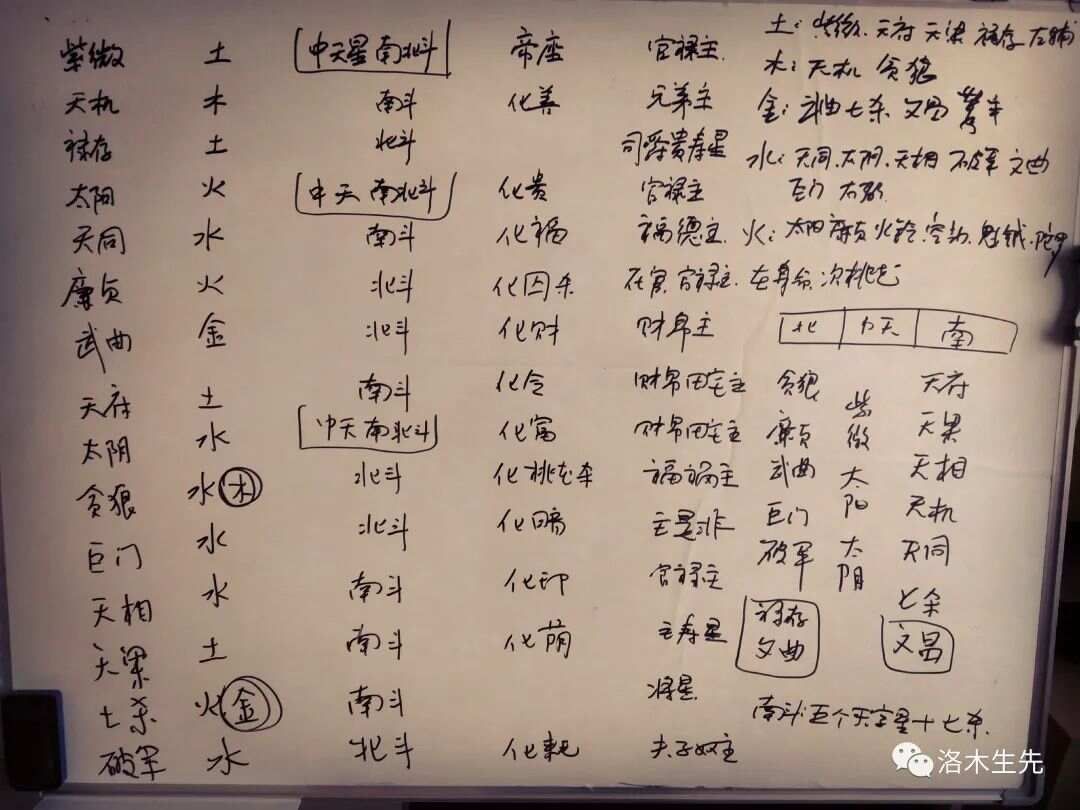 紫微 土 中天星南北斗 帝座 官禄主
天机 木 南斗 化善 兄弟主
禄存 土 北斗 司爵贵寿星
太阳 火 中天南北斗 化贵 官禄主
天同 水 南斗 化福 福德主
廉贞 火 北斗 化囚杀 在官,官禄主.在身命,次桃花
武曲 金 北斗 化财 财帛主
天府 土 南斗 化令 财帛田宅主
太阴 水 中天南北斗 化富 财帛田宅主
贪狼 水(木) 北斗 化桃花杀 福祸主
巨门 水 北斗 化暗 主是非
天相 水 南斗 化印 官禄主
天梁 土 南斗 化荫 主寿星
七杀 火(金) 南斗 将星
破军 水 北斗 化耗 夫子奴主
土:紫微.天府 天梁 禄存 左辅
木:天机 贪狼
金:武曲七杀 文昌 擎羊
水:天同.太阴.天相 破军 文曲
巨门 右弼
火:太阳廉贞火铃.空劫.魁钺.陀罗
北 中天 南
贪狼 廉贞 武曲 巨门 破军
禄存
文曲
紫微 太阳 太阴
天府
天梁
天相
天机
天同
七杀
文昌
南斗:五个天字星+七杀
洛木生先